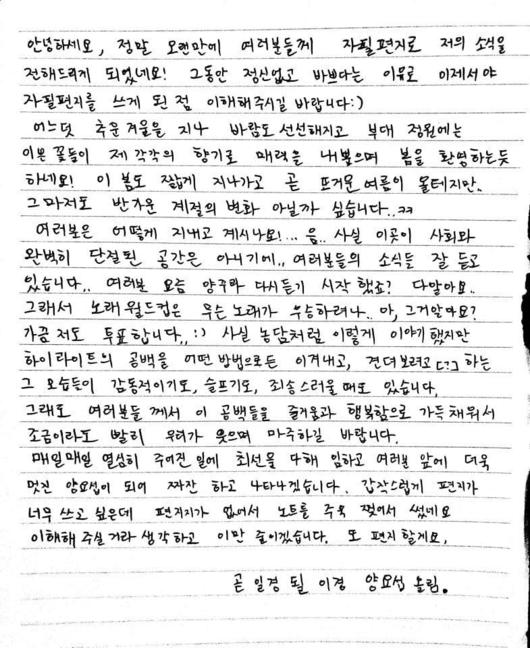 안녕하세요, 정말 오랜만에 여러분들께 자필편지로 저의 소식을
전해드리게 되었네요! 그동안 정신없고 바쁘다는 이유로 이제서야
자필편지를 쓰게 된 점 이해해주시길 바랍니다:)
어느덧 추운 겨울을 지나 바람도 선선해지고 부대 정원에는
이쁜 꽃들이 제 각각의 향기로 매력을 내뿜으며 봄을 환영하는듯
하네요! 이 봄도 짧게 지나가고 곧 뜨거운 여름이 올테지만..
그마저도 반가운 계절의 변화 아닐까 싶습니다..ㅋㅋ
여러분은 어떻게 지내고 계시나요!... 음.. 사실 이곳이 사회와
완벽히 단절된 공간은 아니기에.. 여러분들의 소식들 잘 듣고
있습니다.. 여러분 요즘 양구와 다시듣기 시작했죠? 다알아요..
그래서 노래월드컵은 무슨노래가 우승하려나.. 아, 그거알아요?
가끔 저도 투표합니다..:) 사실 농담처럼 이렇게 이야기했지만
하이라이트의 공백을 어떤 방법으로든 이겨내고, 견뎌보려고 [그] 하는
그 모습들이 감동적이기도, 슬프기도, 죄송스러울때도 있습니다.
그래도 여러분들께서 이 공백들을 즐거움과 행복함으로 가득채워서
조금이라도 빨리 우리가 웃으며 마주하길 바랍니다.
매일매일 열심히 주어진 일에 최선을 다해 임하고 여러분 앞에 더욱
멋진 양요섭이 되어 짜잔 하고 나타나겠습니다. 갑작스럽게 편지가
너무 쓰고 싶은데 편지지가 없어서 노트를 주욱 찢어서 썼네요
이해해 주실거라 생각하고 이만 줄이겠습니다. 또 편지 할게요.
곧 일경 될 이경 양요섭 올림.